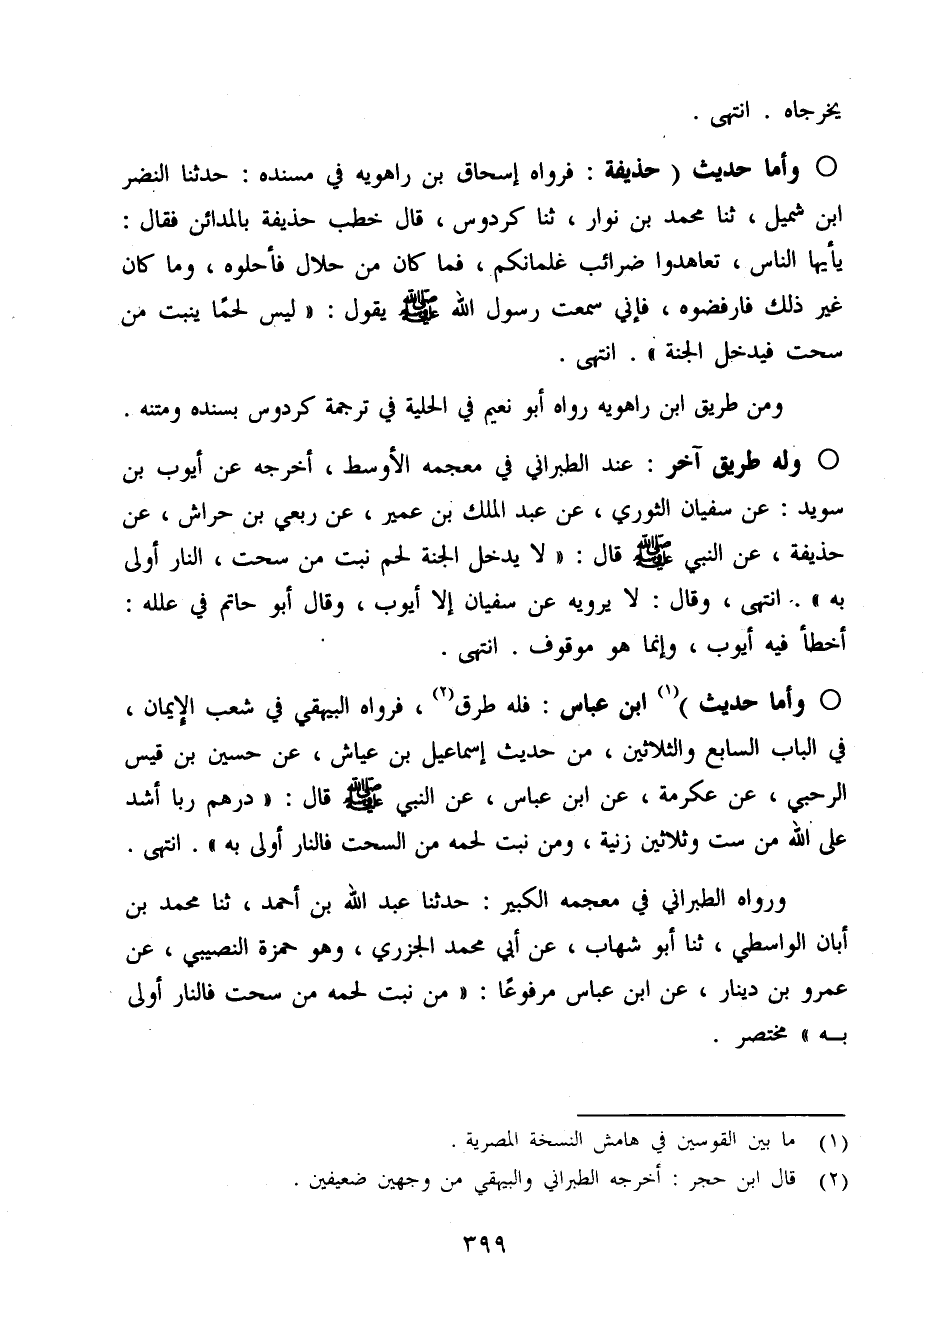 يخرجاه . انتهى .
○ وأما حديث ( حذيفة : فرواه إسحاق بن راهويه في مسنده : حدثنا النضر
ابن شميل ، ثنا محمد بن نوار ، ثنا كردوس ، قال خطب حذيفة بالمدائن فقال :
يأيها الناس ، تعاهدوا ضرائب غلمانكم ، فما كان من حلال فأحلوه ، وما كان
غير ذلك فارفضوه ، فإني سمعت رسول الله ﷺ يقول : « ليس لحمًا ينبت من
سحت فيدخل الجنة » . انتهى .
ومن طريق ابن راهويه رواه أبو نعيم في الحلية في ترجمة كردوس بسنده ومتنه .
○ وله طريق آخر : عند الطبراني في معجمه الأوسط ، أخرجه عن أيوب بن
سويد : عن سفيان الثوري ، عن عبد الملك بن عمير ، عن ربعي بن حراش ، عن
حذيفة ، عن النبي ﷺ قال : « لا يدخل الجنة لحم نبت من سحت ، النار أولى
به » . انتهى ، وقال : لا يرويه عن سفيان إلا أيوب ، وقال أبو حاتم في علله :
أخطأ فيه أيوب ، وإنما هو موقوف . انتهى .
○ وأما حديث )(١) ابن عباس : فله طرق(٢) ، فرواه البيهقي في شعب الإيمان ،
في الباب السابع والثلاثين ، من حديث إسماعيل بن عياش ، عن حسين بن قيس
الرحبي ، عن عكرمة ، عن ابن عباس ، عن النبي ﷺ قال : « درهم ربا أشد
على الله من ست وثلاثين زنية ، ومن نبت لحمه من السحت فالنار أولى به » . انتهى .
ورواه الطبراني في معجمه الكبير : حدثنا عبد الله بن أحمد ، ثنا محمد بن
أبان الواسطي ، ثنا أبو شهاب ، عن أبي محمد الجزري ، وهو حمزة النصيبي ، عن
عمرو بن دينار ، عن ابن عباس مرفوعًا : « من نبت لحمه من سحت فالنار أولى
بـه » مختصر .
(١) ما بين القوسين في هامش النسخة المصرية .
(٢) قال ابن حجر : أخرجه الطبراني والبيهقي من وجهين ضعيفين .
٣٩٩